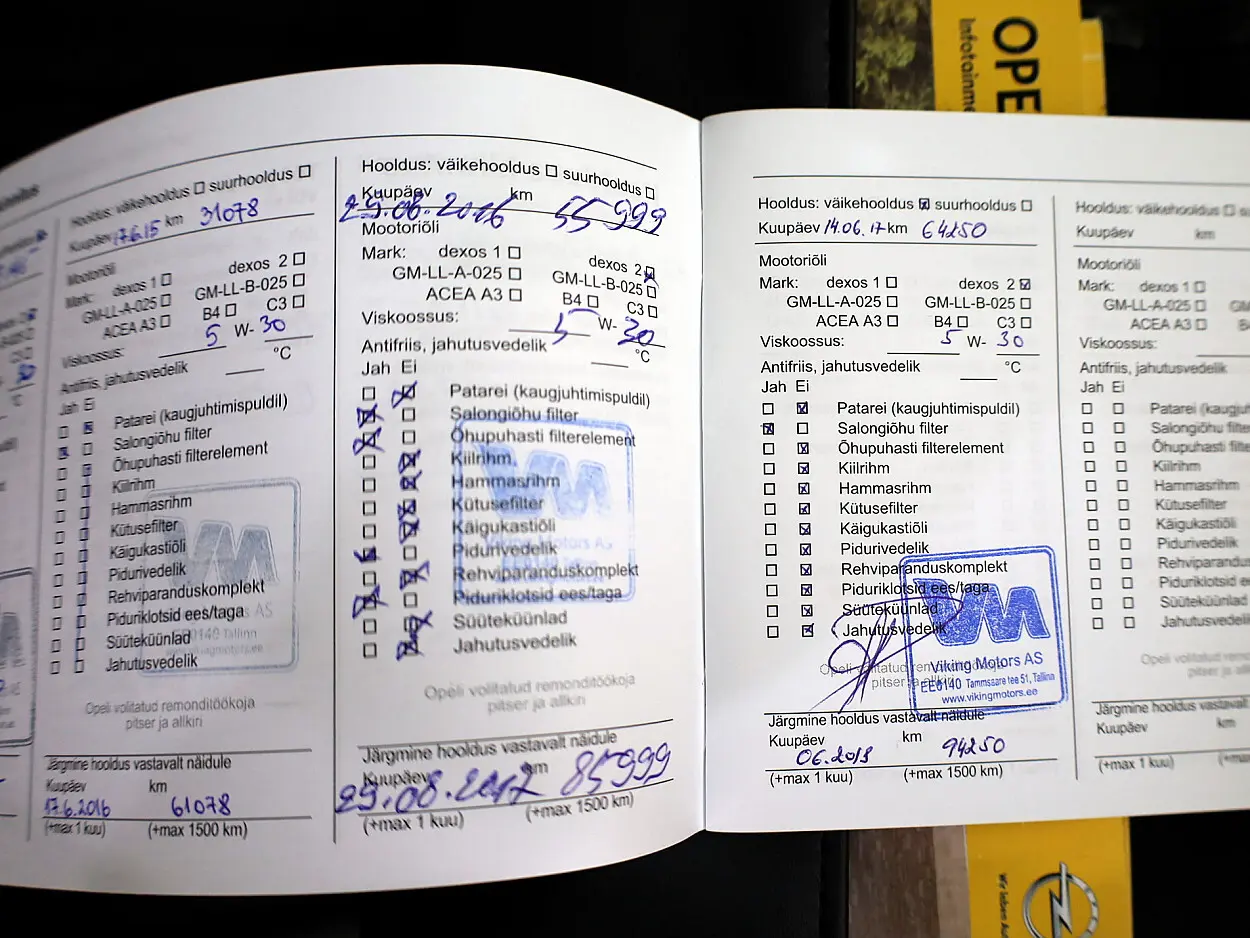 Hooldus: väikehooldus ☐ suurhooldus ☐
Kuupäev 17.6.15 km 31078
Mootoriõli
Mark: dexos 1 ☐ dexos 2 ☐
GM-LL-A-025 ☐ GM-LL-B-025 ☐
ACEA A3 ☐ B4 ☐ C3 ☐
Viskoossus: 5 W- 30
Antifriis, jahutusvedelik °C
Jah Ei
Patarei (kaugjuhtimispuldil)
Salongiõhu filter
Õhupuhasti filterelement
Kiilrihm
Hammasrihm
Kütusefilter
Käigukastiõli
Pidurivedelik
Rehviparanduskomplekt
Piduriklotsid ees/taga
Süüteküünlad
Jahutusvedelik
Opeli volitatud remonditöökoja
pitser ja allkiri
Järgmine hooldus vastavalt näidule
Kuupäev km
17.6.2016 61078
(+max 1 kuu) (+max 1500 km)
Hooldus: väikehooldus ☐ suurhooldus ☐
Kuupäev km
29.08.2016 55999
Mootoriõli
Mark: dexos 1 ☐ dexos 2 ☒
GM-LL-A-025 ☐ GM-LL-B-025 ☐
ACEA A3 ☐ B4 ☐ C3 ☐
Viskoossus: 5 W- 30
Antifriis, jahutusvedelik °C
Jah Ei
Patarei (kaugjuhtimispuldil)
Salongiõhu filter
Õhupuhasti filterelement
Kiilrihm
Hammasrihm
Kütusefilter
Käigukastiõli
Pidurivedelik
Rehviparanduskomplekt
Piduriklotsid ees/taga
Süüteküünlad
Jahutusvedelik
Viking Motors AS
Opeli volitatud remonditöökoja
pitser ja allkiri
Järgmine hooldus vastavalt näidule
Kuupäev km
29.08.2017 85999
(+max 1 kuu) (+max 1500 km)
Hooldus: väikehooldus ☒ suurhooldus ☐
Kuupäev 14.06.17 km 64250
Mootoriõli
Mark: dexos 1 ☐ dexos 2 ☒
GM-LL-A-025 ☐ GM-LL-B-025 ☐
ACEA A3 ☐ B4 ☐ C3 ☐
Viskoossus: 5 W- 30
Antifriis, jahutusvedelik °C
Jah Ei
☐ ☒ Patarei (kaugjuhtimispuldil)
☒ ☐ Salongiõhu filter
☐ ☒ Õhupuhasti filterelement
☐ ☒ Kiilrihm
☐ ☒ Hammasrihm
☐ ☒ Kütusefilter
☐ ☒ Käigukastiõli
☐ ☒ Pidurivedelik
☐ ☒ Rehviparanduskomplekt
☐ ☒ Piduriklotsid ees/taga
☐ ☒ Süüteküünlad
☐ ☒ Jahutusvedelik
Opeli volitatud remonditöökoja
pitser ja allkiri
Viking Motors AS
EE0140 Tammsaare tee 51, Tallinn
www.vikingmotors.ee
Järgmine hooldus vastavalt näidule
Kuupäev km
06.2018 94250
(+max 1 kuu) (+max 1500 km)
Hooldus: väikehooldus ☐
Kuupäev km
Mootoriõli
Mark: dexos 1 ☐
GM-LL-A-025 ☐
ACEA A3 ☐
Viskoossus:
Antifriis, jahutusvedelik
Jah Ei
Salongiõhu
Õhupuhasti
Kiilrihm
Hammasrihm
Kütusefilter
Käigukastiõli
Pidurivedelik
Süüteküünlad
Jahutusvedelik
Opeli volitatud
Järgmine hooldus vastavalt
Kuupäev km
(+max 1 kuu)